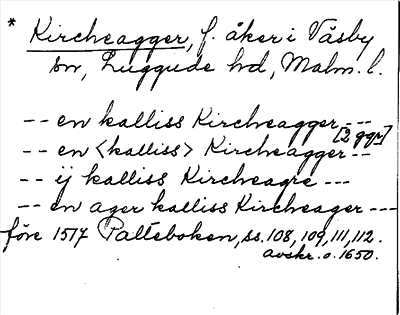 * Kircheagger, f. åker i Väsby
sn, Luggude hd, Malm. l.
-- en kalliss Kircheagger ---
[2 ggr]
-- en <kalliss> Kircheagger --
-- ij kalliss Kircheagre ---
-- en ager kalliss Kircheager ---
före 1517 Palteboken, ss. 108, 109, 111, 112.
avskr. o. 1650.